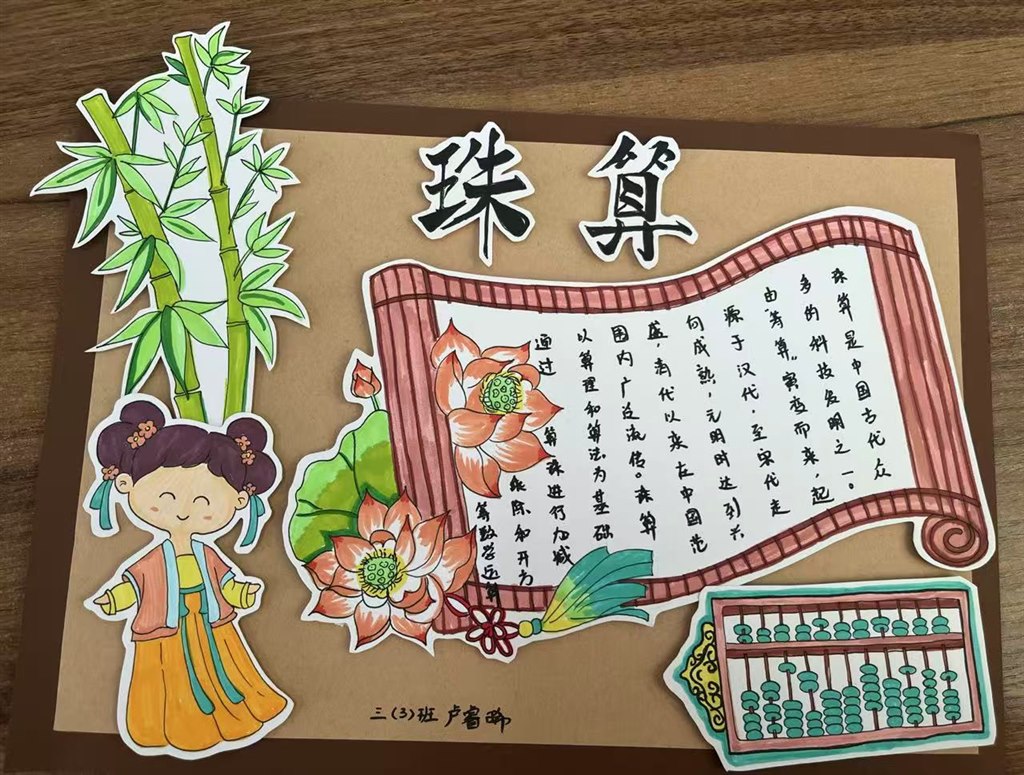 珠算
珠算是中国古代众
多的科技发明之一。
由“筹算”演变而来，起
源于汉代，至宋代走
向成熟，元明时达到兴
盛，清代以来在中国范
围内广泛流传。珠算
以算理和算法为基础
通过 算珠进行加减
乘除和开方
等数学运算
三(3)班 卢睿